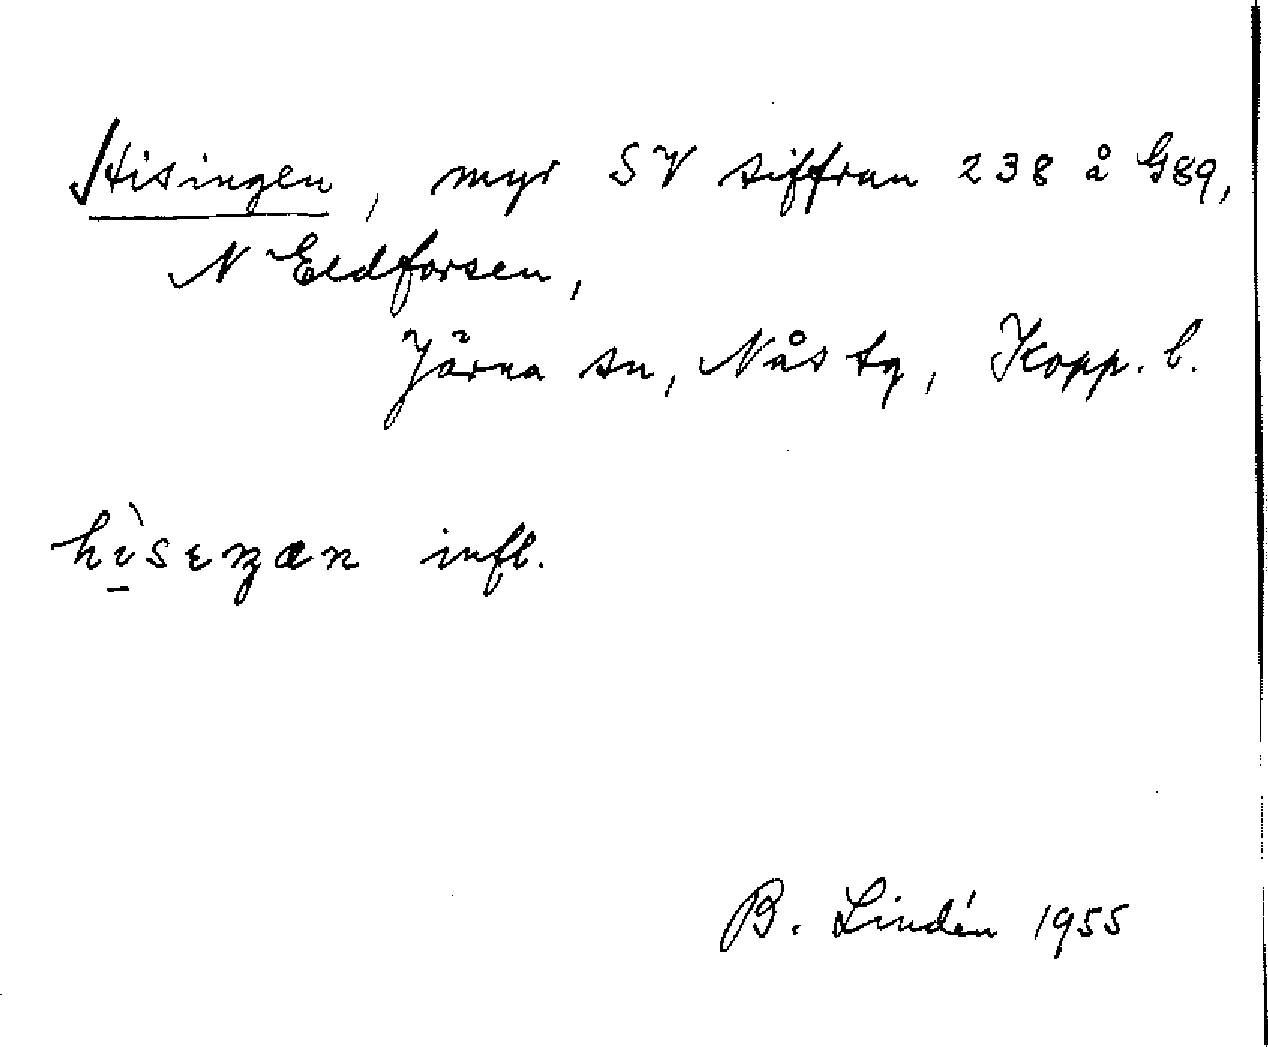 Hisingen, myr SV siffran 238 å G89,
N Eldforsen,
Järna sn, Nås tg, Kopp. l.
hìsɛŋan infl.
B. Lindén 1955